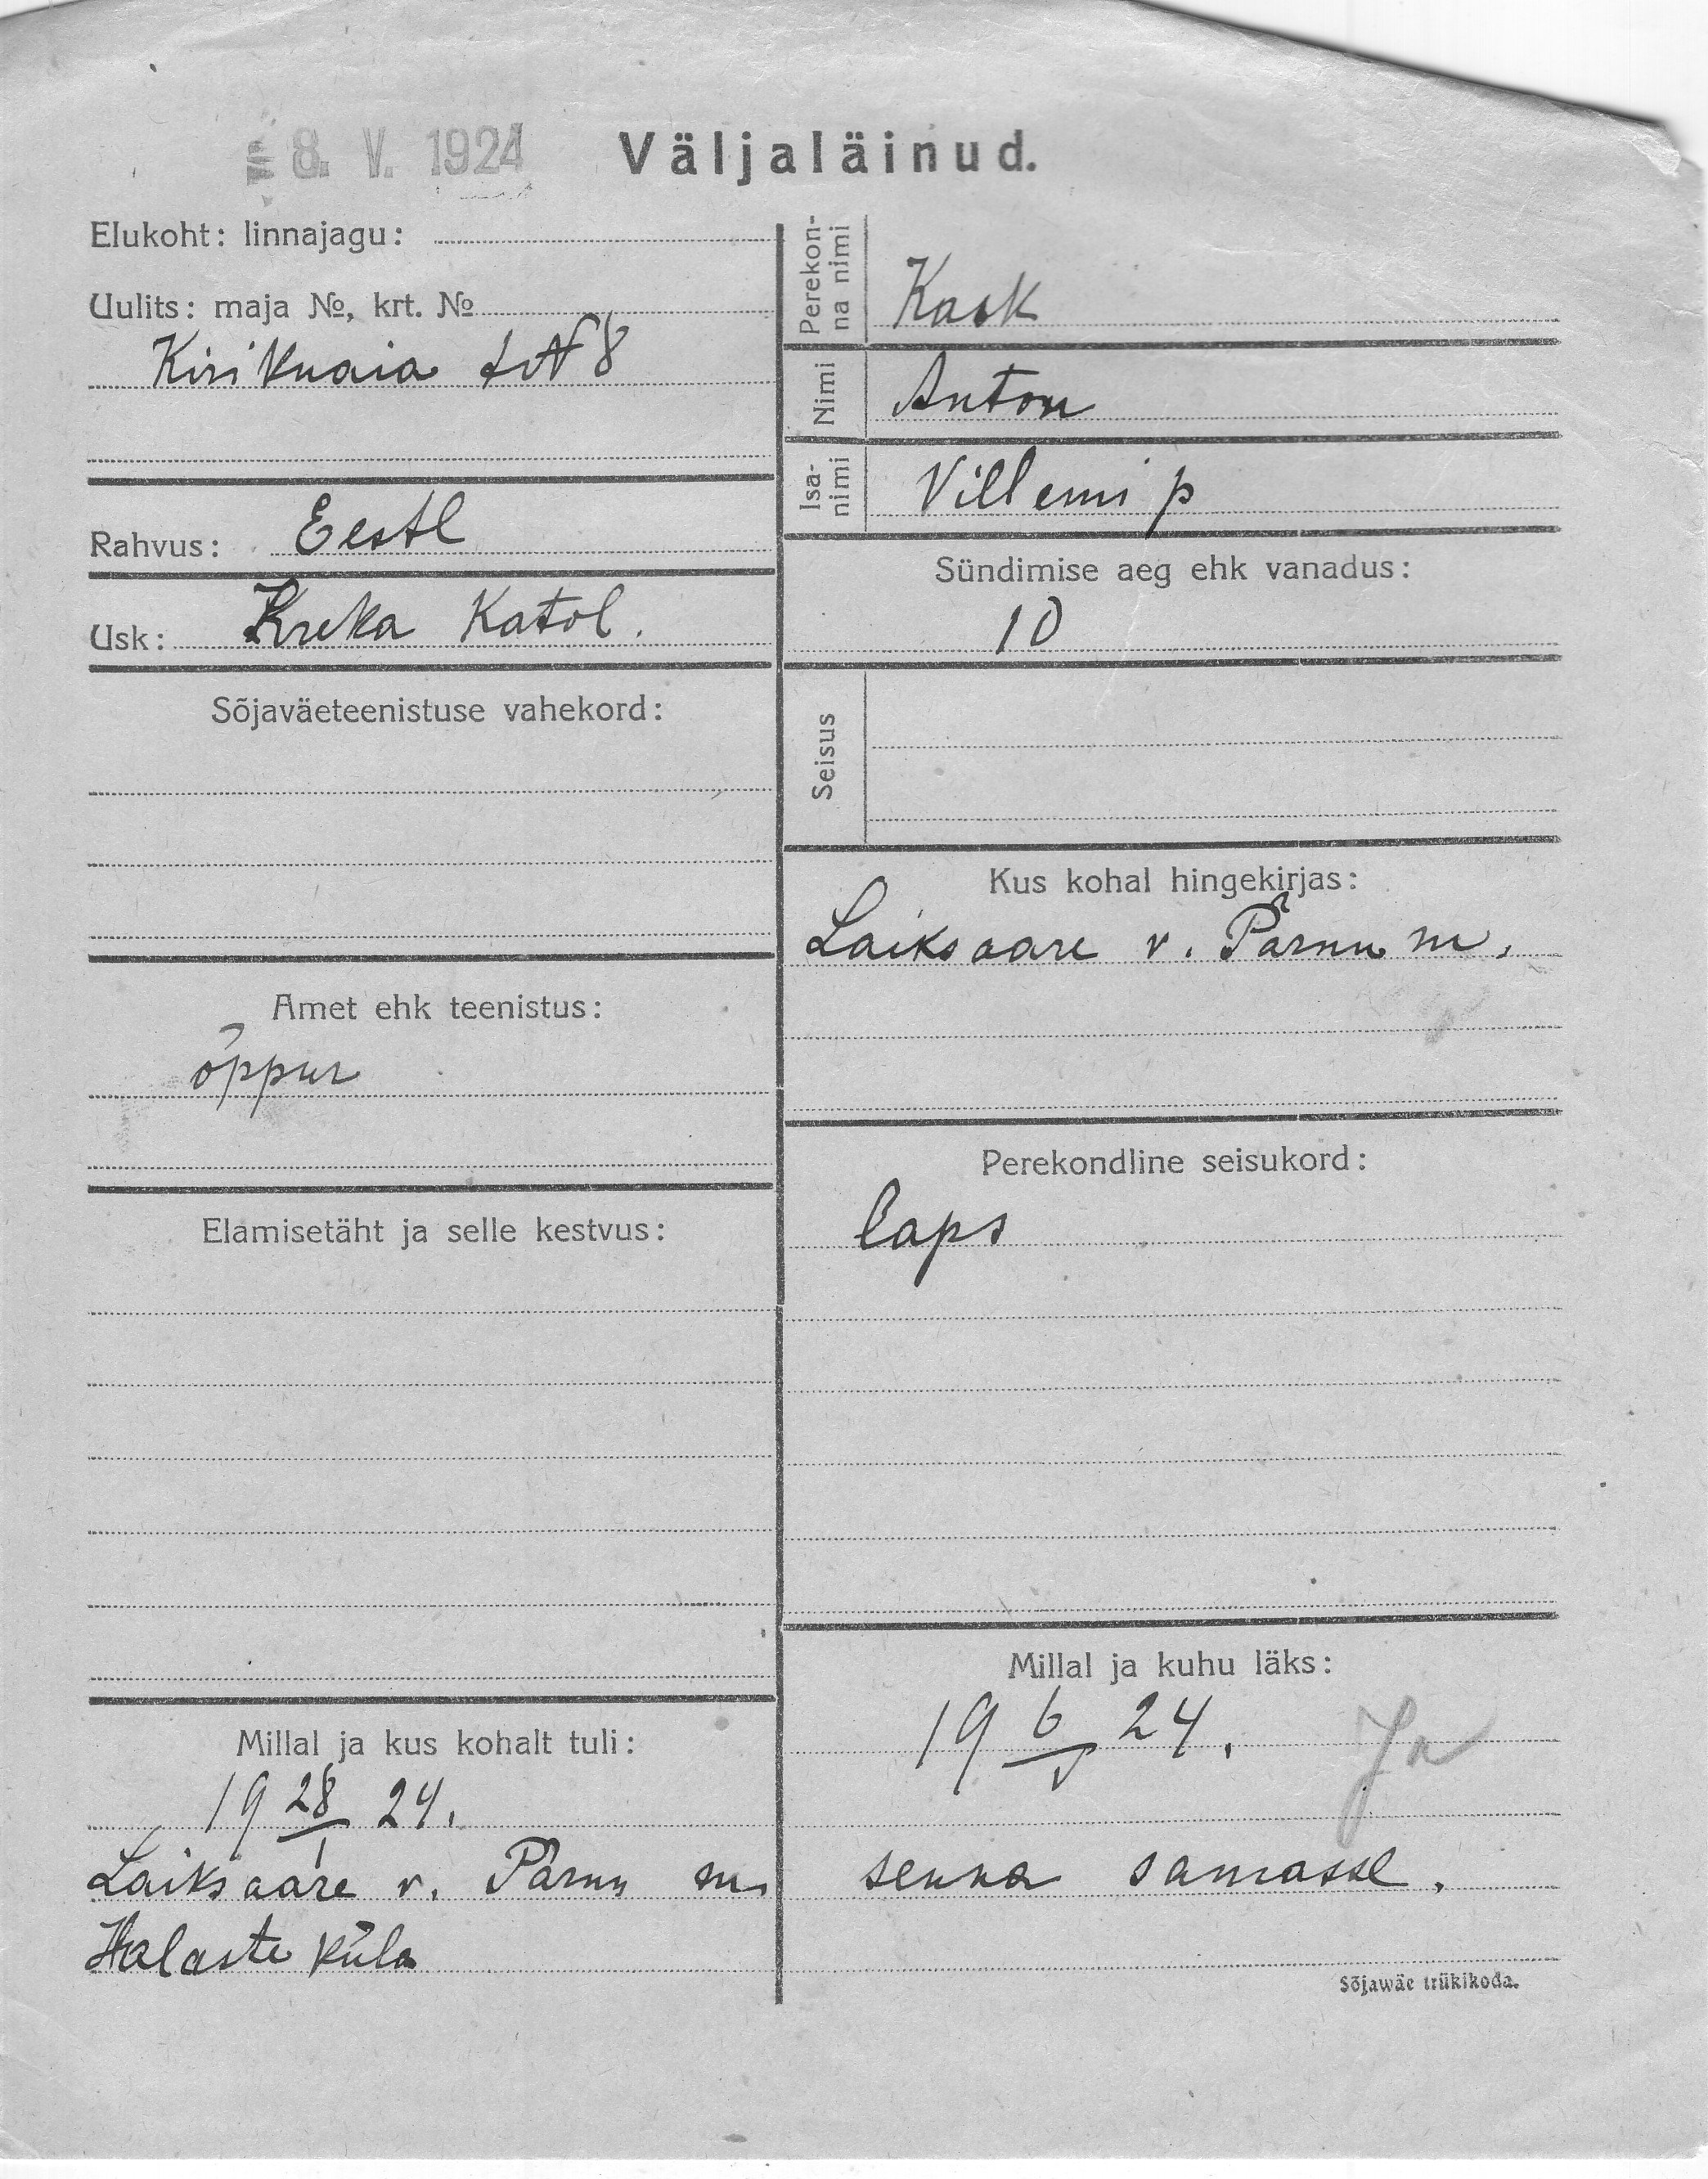 8. V. 1924
Väljaläinud.
Elukoht: linnajagu:
Uulits: maja №, krt. №
Kirikuaia t № 8
Rahvus: Eestl
Usk: Kreka Katol.
Sõjaväeteenistuse vahekord:
Amet ehk teenistus:
õppur
Elamisetäht ja selle kestvus:
Millal ja kus kohalt tuli:
19 28/I 24.
Laiksaare v. Pärnu m.
Halaste küla
Perekon-
na nimi
Kask
Nimi
Anton
Isa-
nimi
Villemi p
Sündimise aeg ehk vanadus:
10
Seisus
Kus kohal hingekirjas:
Laiksaare v. Pärnu m.
Perekondline seisukord:
laps
Millal ja kuhu läks:
19 6/V 24.
senna samasse.
Sõjawäe trükikoda.